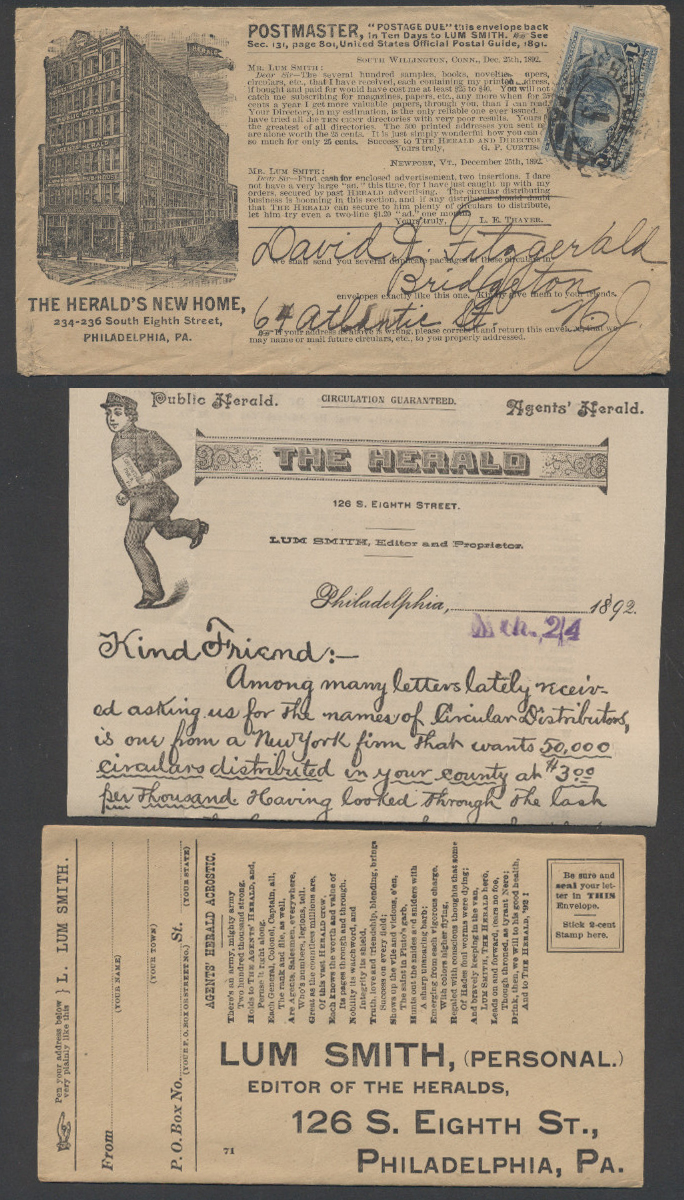 POSTMASTER, "POSTAGE DUE" this envelope back
in Ten Days to LUM SMITH. See
Sec. 131, page 801, United States Official Postal Guide, 1891.
HERALD
SOUTH WILLINGTON, CONN., Dec. 25th, 1892.
MR. LUM SMITH:
Dear Sir—The several hundred samples, books, novelties, papers,
circulars, etc., that I have received, each containing my printed address,
if bought and paid for would have cost me at least $25 to $40. You will not
catch me subscribing for magazines, papers, etc., any more when for 25
cents a year I get more valuable papers, through you, than I can read.
Your Directory, in my estimation, is the only reliable one ever issued. I
have tried all the TEN CENT directories with very poor results. Yours is
the greatest of all directories. The 500 printed addresses you sent me
are alone worth the 25 cents. It is just simply wonderful how you can do
so much for only 25 cents. Success to THE HERALD AND DIRECTORY
Yours truly, G. F. CURTIS.
NEWPORT, VT., December 25th, 1892.
MR. LUM SMITH:
Dear Sir—Find cash for enclosed advertisement, two insertions. I dare
not have a very large "an," this time, for I have just caught up with my
orders, secured by past HERALD advertising. The circular distributing
business is booming in this section, and if any distributor should doubt
that THE HERALD can secure to him plenty of circulars to distribute,
let him try even a two-line $1.20 "ad." one month.
Yours truly, L. E. THAYER.
David D. Fitzgerald
We shall send you several duplicate packages of these circulars in
Bridgeton
envelopes exactly like this one. Kindly give them to your friends.
64 Atlantic St. N. J.
If your address as above is wrong, please correct it and return this envelope that we
may name or mail future circulars, etc., to you properly addressed.
THE HERALD'S NEW HOME,
234-236 South Eighth Street,
PHILADELPHIA, PA.
Public Herald. CIRCULATION GUARANTEED. Agents' Herald.
THE HERALD
126 S. EIGHTH STREET.
LUM SMITH, Editor and Proprietor.
Philadelphia, 1892.
Mch. 24
Kind Friend:—
Among many letters lately receiv-
ed asking us for the names of Circular Distributors,
is one from a New York firm that wants 50,000
circulars distributed in your county at $3.00
per thousand. Having looked through the last
Pen your address below
very plainly like this } L. LUM SMITH.
From
(YOUR NAME)
(YOUR TOWN)
P. O. Box No. St.
(YOUR P. O. BOX OR STREET NO.) (YOUR STATE)
AGENTS' HERALD ACROSTIC.
There's an army, mighty army
Two hundred thousand strong,
Holds to THE AGENTS' HERALD, and,
Peruse it right along.
Each General, Colonel, Captain, all,
The rank and file, as well,
Are Agents, Salesmen, everywhere,
Who's numbers, legions, tell.
Great as the countless millions are,
Of this vast HERALD crew,
Each knows the worth and value of
Its pages through and through.
Nobility its watchword, and
Integrity its shield,
Truth, love and friendship, blending, brings
Success on every field;
Shows up the vile and vicious, e'en,
The saint in Pluto's garb,
Hunts out the snides and sniders with
A sharp unsparing barb;
Emerging from each vigorous charge,
With colors higher flying,
Regaled with conscious thoughts that some
Of Hades foul worms were dying;
And bravely keeping in the van,
LUM SMITH, THE HERALD hero,
Leads on and forward, fears no foe,
Though throned, like tyrant Nero;
Drink, then, we will to his good health,
And to THE HERALD, '92!
Be sure and
seal your let-
ter in THIS
Envelope.
Stick 2-cent
Stamp here.
LUM SMITH, (PERSONAL.)
EDITOR OF THE HERALDS,
126 S. EIGHTH ST.,
PHILADELPHIA, PA.
71